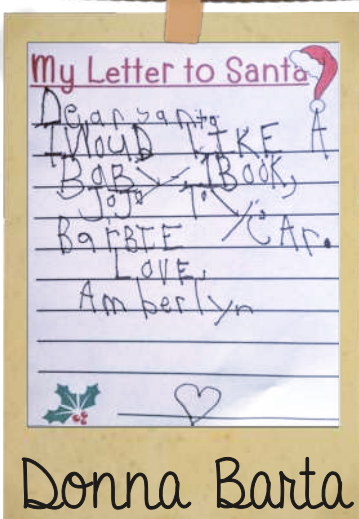 My Letter to Santa
Dear santa
I WOUD LIKE A
BABY IBOOK,
JoJo TOY,
BarBIE CAr.
LOVE,
Amberlyn
Donna Barta